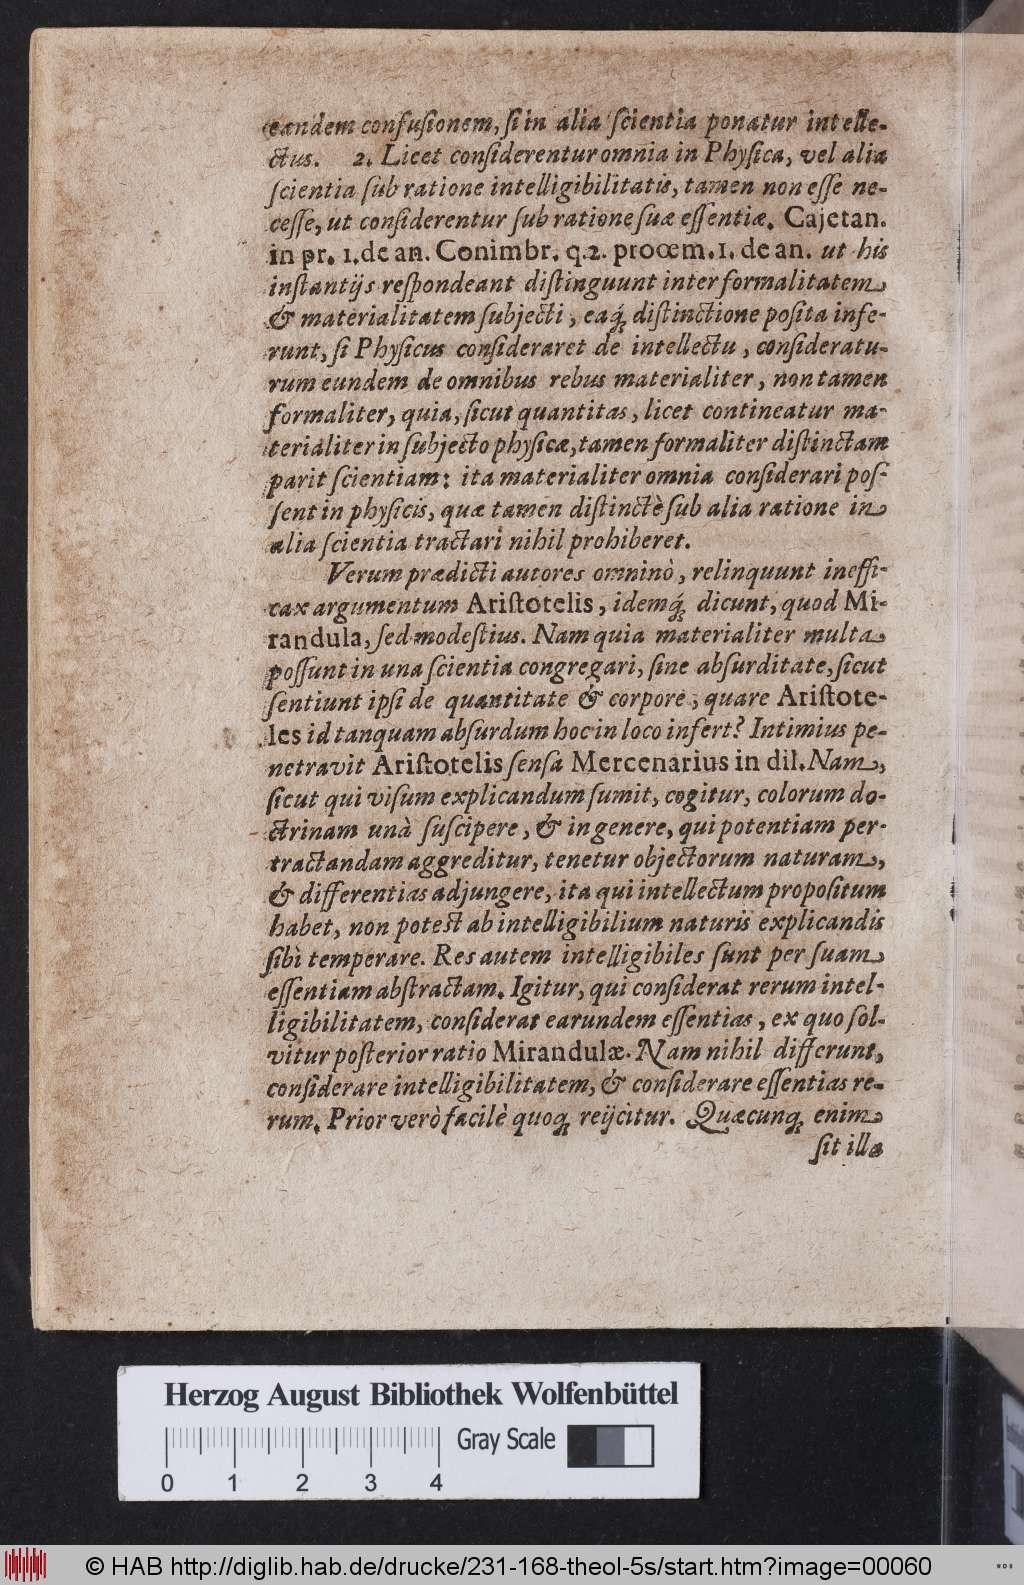 eandem confuſionem, ſi in alia ſcientia ponatur intelle-
ctus. 2. Licet conſiderentur omnia in Phyſica, vel alia
ſcientia ſub ratione intelligibilitatis, tamen non eſſe ne-
ceſſe, ut conſiderentur ſub ratione ſuæ eſſentiæ. Cajetan.
in pr. 1. de an. Conimbr. q.2. proœm. 1. de an. ut his
inſtantijs reſpondeant diſtinguunt inter formalitatem
& materialitatem ſubjecti, eaq́; diſtinctione poſita infe-
runt, ſi Phyſicus conſideraret de intellectu, conſideratu-
rum eundem de omnibus rebus materialiter, non tamen
formaliter, quia, ſicut quantitas, licet contineatur ma-
terialiter in ſubjecto phyſicæ, tamen formaliter diſtinctam
parit ſcientiam: ita materialiter omnia conſiderari poſ-
ſent in phyſicis, quæ tamen diſtinctè ſub alia ratione in
alia ſcientia tractari nihil prohiberet.
Verum prædicti autores omninò, relinquunt ineffi-
cax argumentum Ariſtotelis, idemq́; dicunt, quod Mi-
randula, ſed modeſtius. Nam quia materialiter multa
poſſunt in una ſcientia congregari, ſine abſurditate, ſicut
ſentiunt ipſi de quantitate & corpore, quare Ariſtote-
les id tanquam abſurdum hoc in loco infert? Intimius pe-
netravit Ariſtotelis ſenſa Mercenarius in dil. Nam,
ſicut qui viſum explicandum ſumit, cogitur, colorum do-
ctrinam unà ſuſcipere, & in genere, qui potentiam per-
tractandam aggreditur, tenetur objectorum naturam,
& differentias adjungere, ita qui intellectum propoſitum
habet, non poteſt ab intelligibilium naturis explicandis
ſibi temperare. Res autem intelligibiles ſunt per ſuam
eſſentiam abſtractam. Igitur, qui conſiderat rerum intel-
ligibilitatem, conſiderat earundem eſſentias, ex quo ſol-
vitur poſterior ratio Mirandulæ. Nam nihil differunt,
conſiderare intelligibilitatem, & conſiderare eſſentias re-
rum. Prior verò facilè quoq; reijcitur. Quæcunq; enim
ſit illa
Herzog August Bibliothek Wolfenbüttel
Gray Scale
0 1 2 3 4
© HAB http://diglib.hab.de/drucke/231-168-theol-5s/start.htm?image=00060